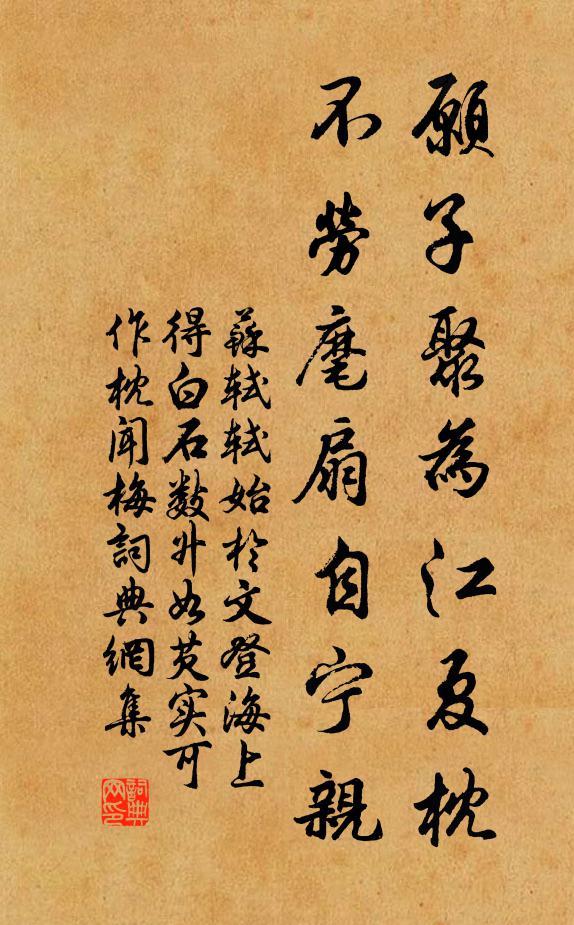 願子聚為江夏枕
不勞麾扇自宁親
蘇軾軾始於文登海上
得白石數升如芡实可
作枕闻梅詞典網集
詞典網印